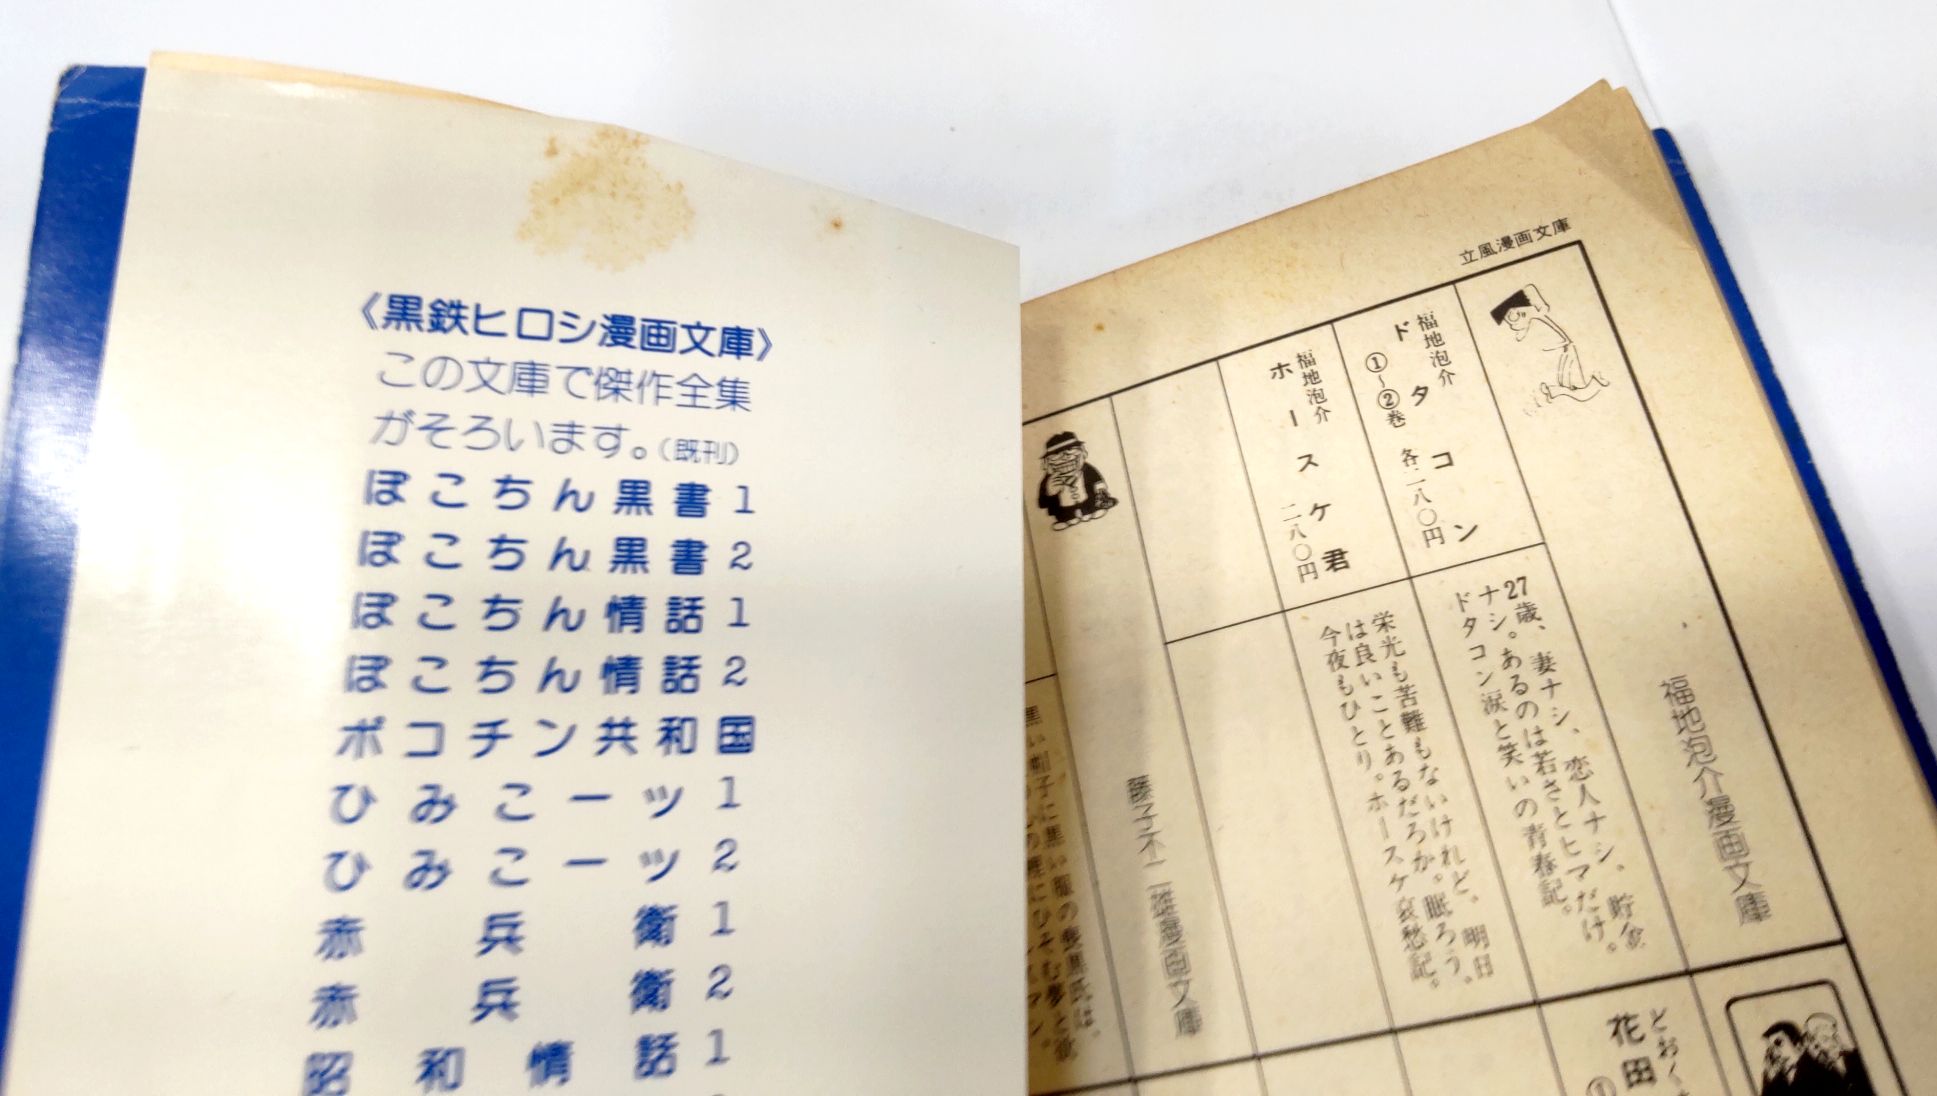 《黒鉄ヒロシ漫画文庫》
この文庫で傑作全集
がそろいます。(既刊)
ぽこちん黒書1
ぽこちん黒書2
ぽこちん情話1
ぽこちん情話2
ポコチン共和国
ひみこーッ1
ひみこーッ2
赤兵衛1
赤兵衛2
昭和情話1
立風漫画文庫
福地泡介漫画文庫
福地泡介
ドタコン
①〜②巻 各二八〇円
27歳、妻ナシ、恋人ナシ、貯金
ナシ。あるのは若さとヒマだけ。
ドタコン涙と笑いの青春記。
福地泡介
ホースケ君
二八〇円
栄光も苦難もないけれど、明日
は良いことあるだろか。眠ろう、
今夜もひとり。ホースケ哀愁記。
藤子不二雄漫画文庫
とおく
花田
①